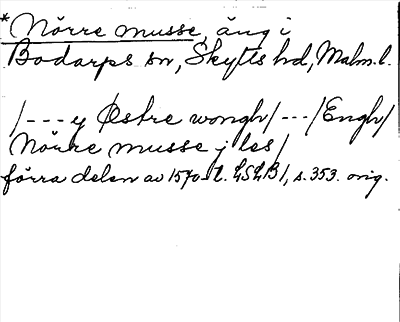 * Nörre musse, äng i
Bodarps sn, Skytts hd, Malm. l.
/---y Østre wongh/---/Engh/
Nörre musse j les/
förra delen av 1570-t. LSLB 1, s. 353. orig.